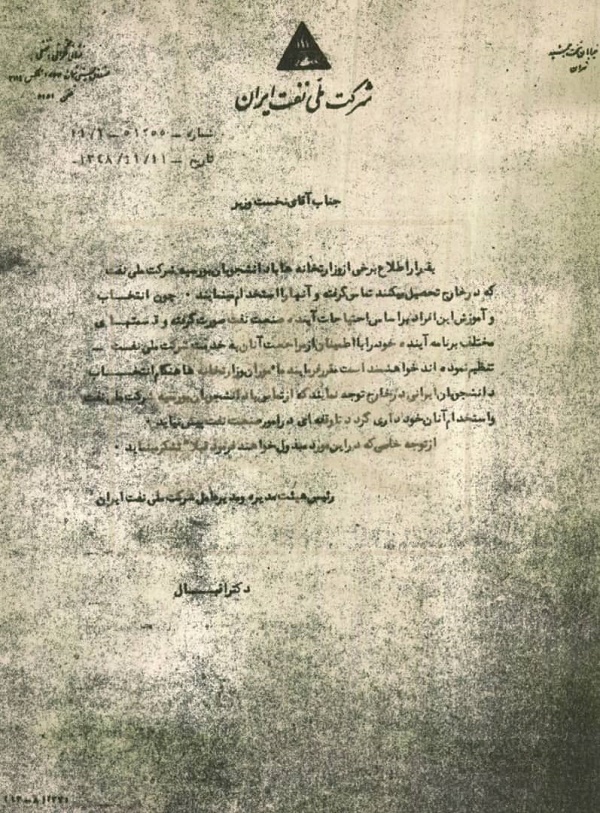 شرکت ملی نفت ایران
خیابان تخت جمشید
تهران
شماره ــ
تاریخ ــ ۱۳۴۸/۱۱/۱۱
جناب آقای نخست وزیر
بقرار اطلاع برخی از وزارتخانه ها با دانشجویان بورسیه شرکت ملی نفت
که در خارج تحصیل میکنند تماس گرفته و آنها را استخدام مینمایند ۰ چون انتخاب
و آموزش این افراد بر اساس احتیاجات آینده صنعت نفت صورت گرفته و قسمتهای
مختلف برنامه آینده خود را با اطمینان از مراجعت آنان به خدمت شرکت ملی نفت ــ
تنظیم نموده اند خواهشمند است مقرر فرمایند مأموران وزارتخانه ها هنگام انتخاب
دانشجویان ایرانی در خارج توجه نمایند که از تماس با دانشجویان بورسیه شرکت ملی نفت
و استخدام آنان خود داری گردد تا وقفه ای در امور صنعت نفت پیش نیاید ۰
از توجه خاصی که در این مورد مبذول خواهند فرمود قبلا" تشکر مینماید ۰
رئیس هیئت مدیره و مدیر عامل شرکت ملی نفت ایران
دکتر اقبال